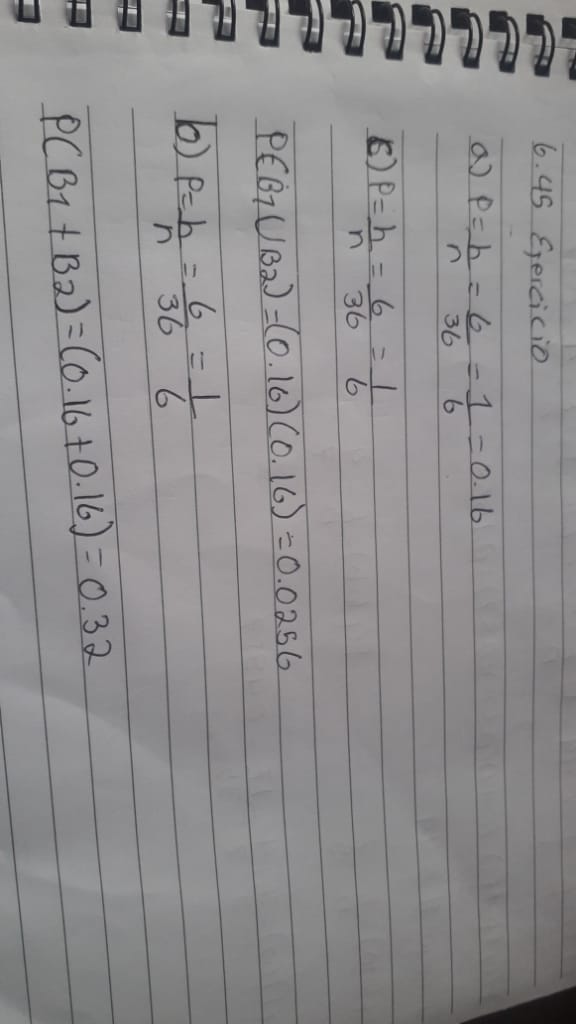 6.45 Ejercicio
a) P = h/n = 6/36 = 1/6 = 0.16
c) P = h/n = 6/36 = 1/6
P(B1 ∪ B2) = (0.16)(0.16) = 0.0256
b) P = h/n = 6/36 = 1/6
P(B1 + B2) = (0.16 + 0.16) = 0.32